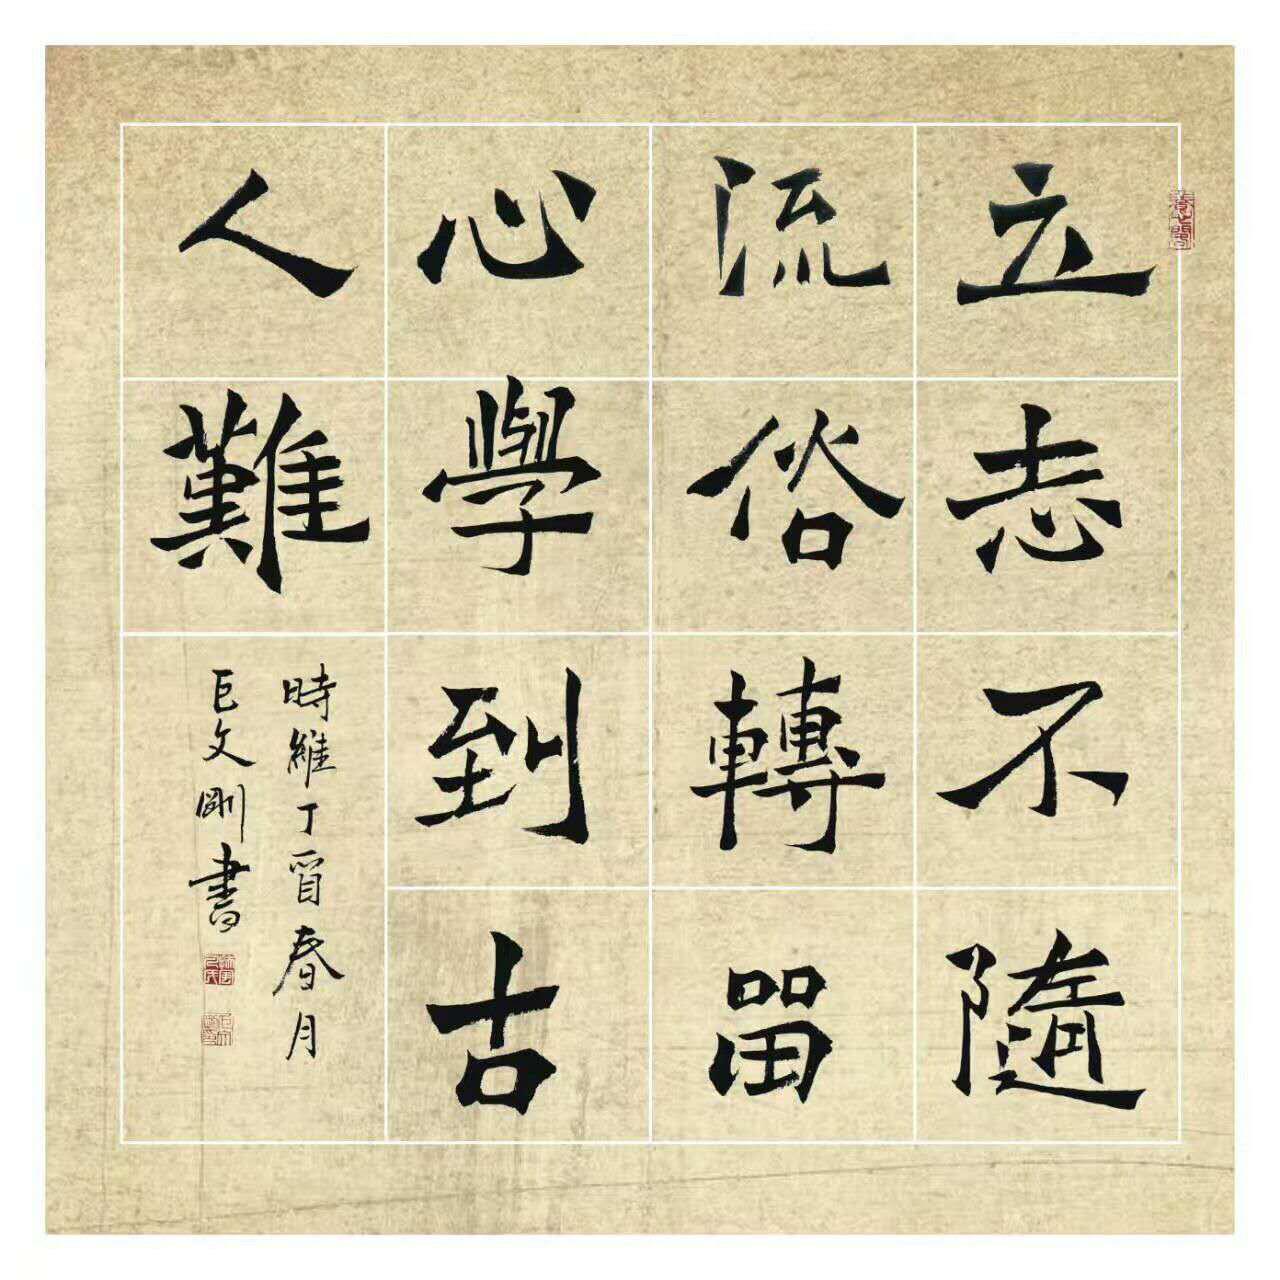 立志不隨
流俗轉畱
心學到古
人難
時維丁酉春月
巨文剛書